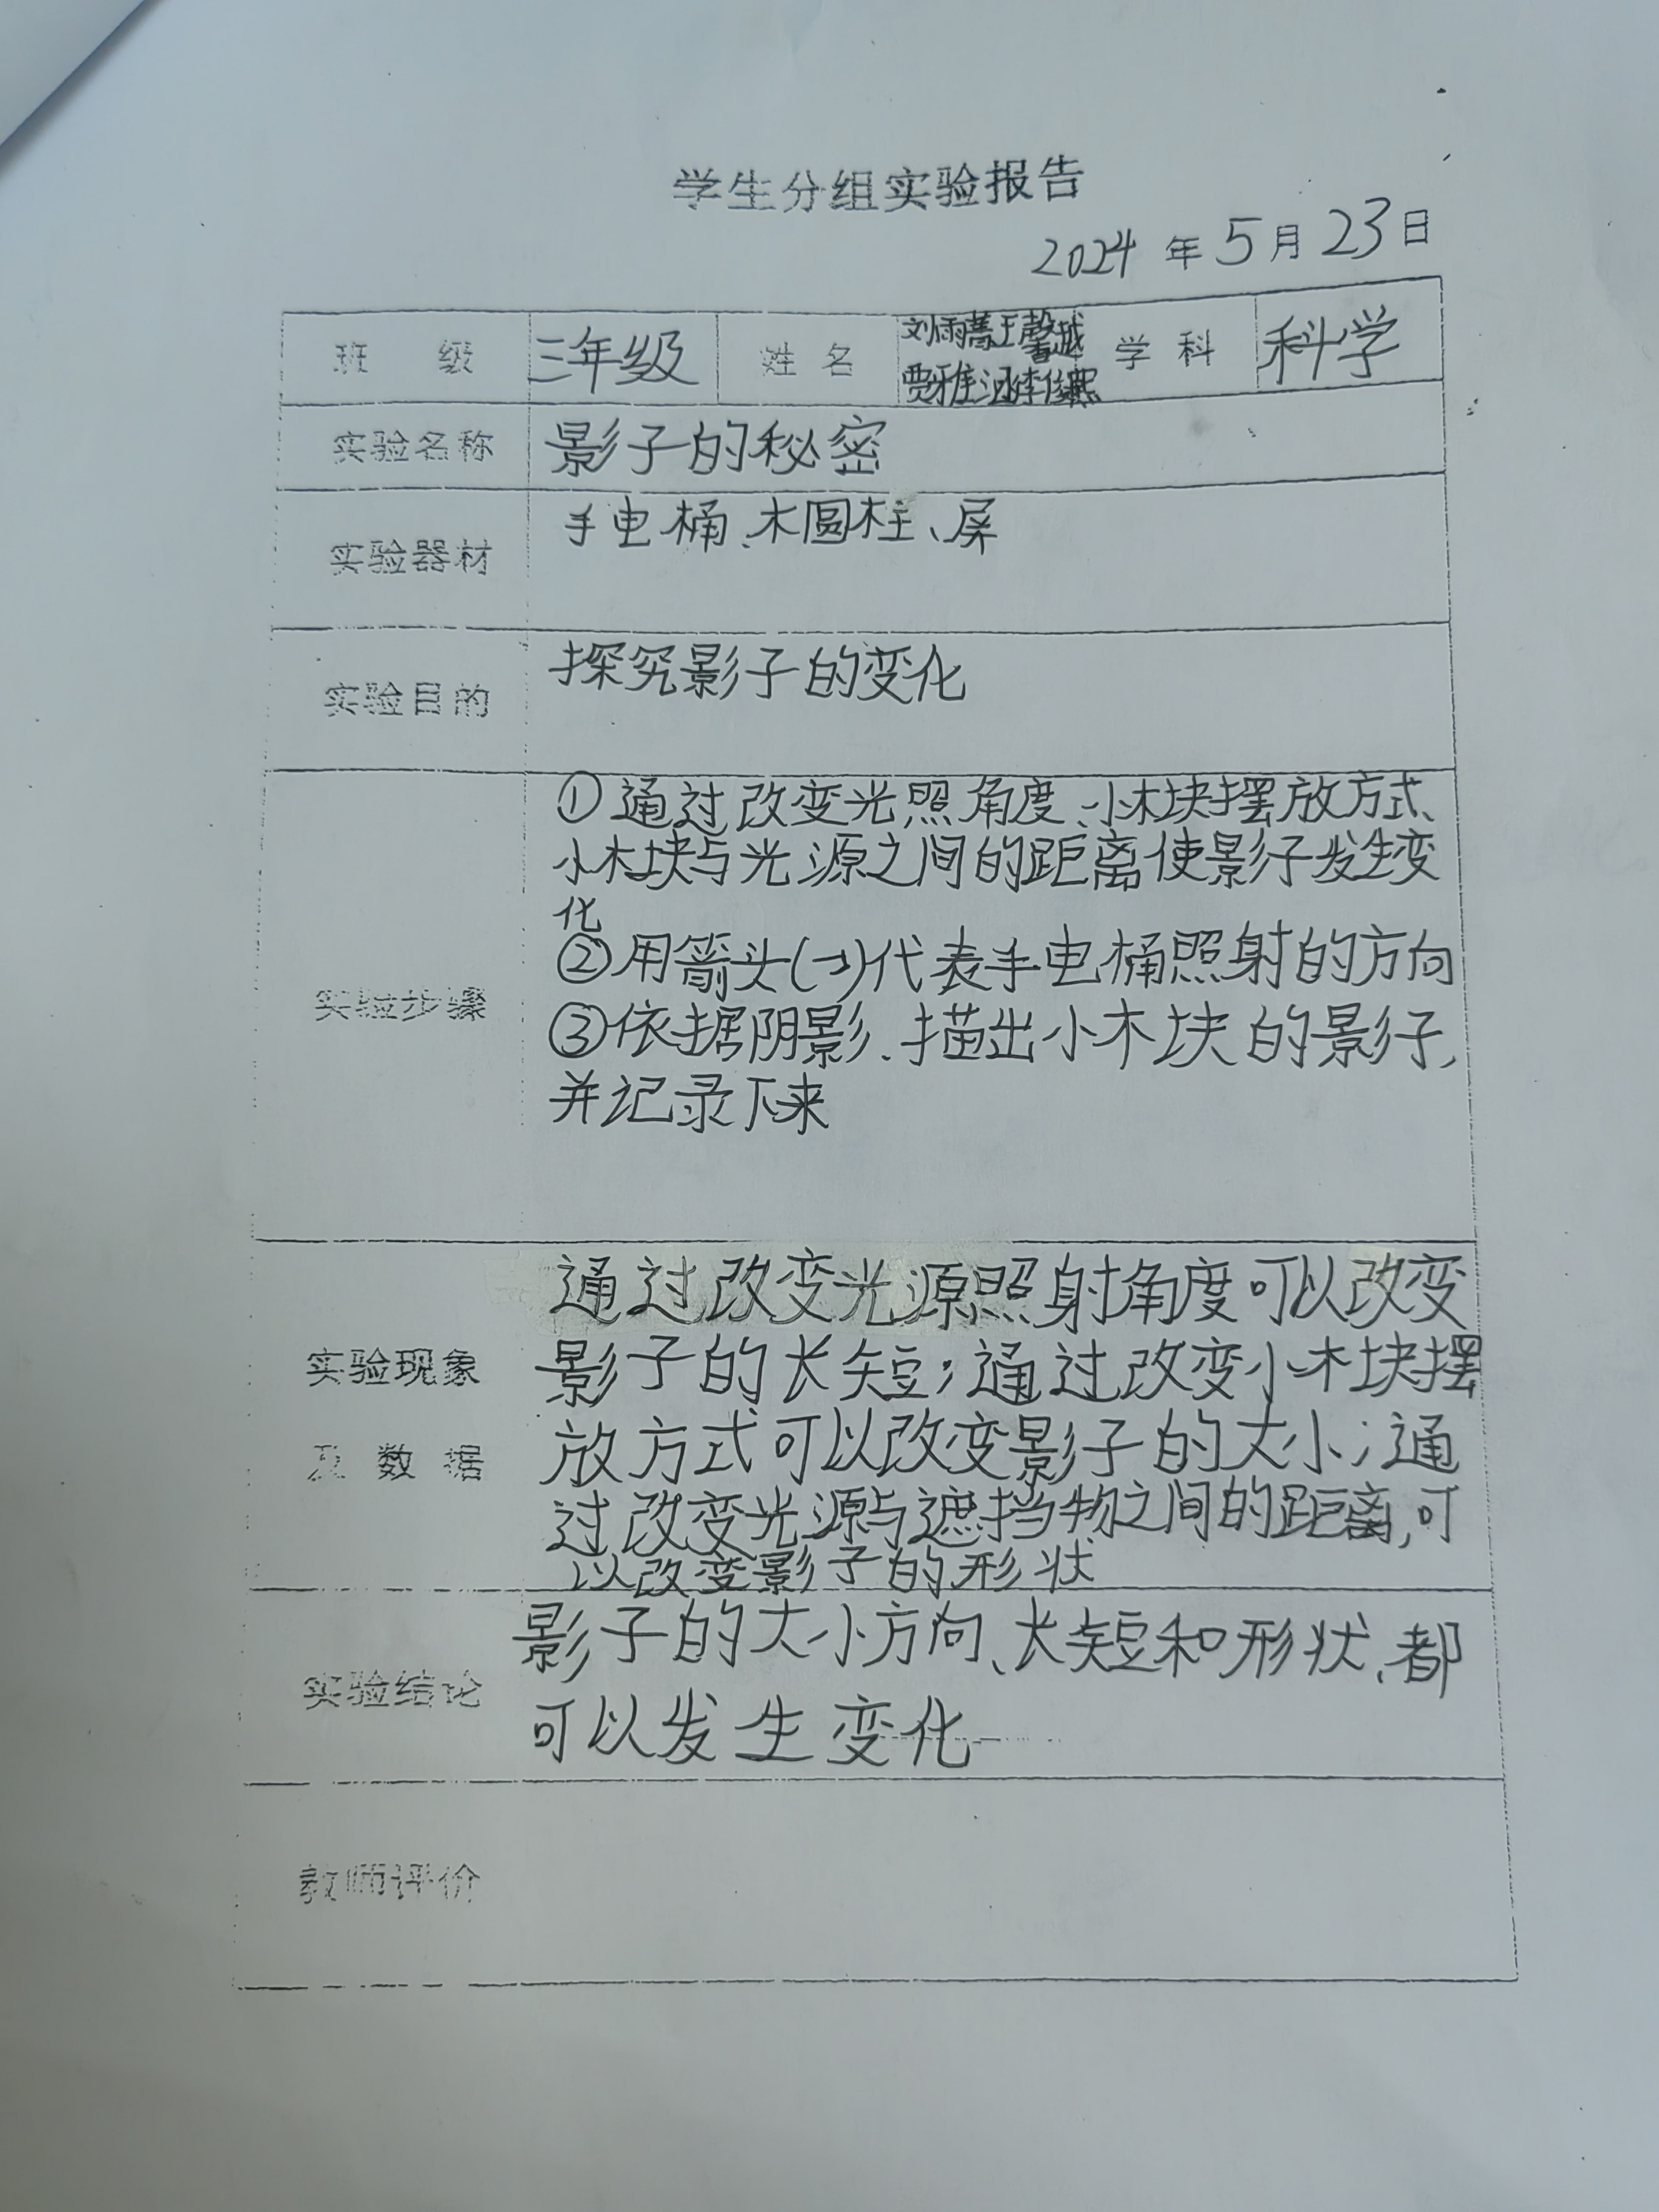 学生分组实验报告
2024 年 5 月 23 日
班 级 三年级 姓 名 刘雨菁王馨越 学 科 科学
贾雅涵李俊熙
实验名称 影子的秘密
实验器材 手电桶、木圆柱、屏
实验目的 探究影子的变化
①通过改变光照角度、小木块摆放方式、
小木块与光源之间的距离使影子发生变
化
②用箭头(→)代表手电桶照射的方向
实验步骤
③依据阴影、描出小木块的影子,
并记录下来
通过改变光源照射角度可以改变
实验现象 影子的长短;通过改变小木块摆
及 数 据 放方式可以改变影子的大小;通
过改变光源与遮挡物之间的距离,可
以改变影子的形状
影子的大小方向、长短和形状、都
实验结论
可以发生变化
教师评价